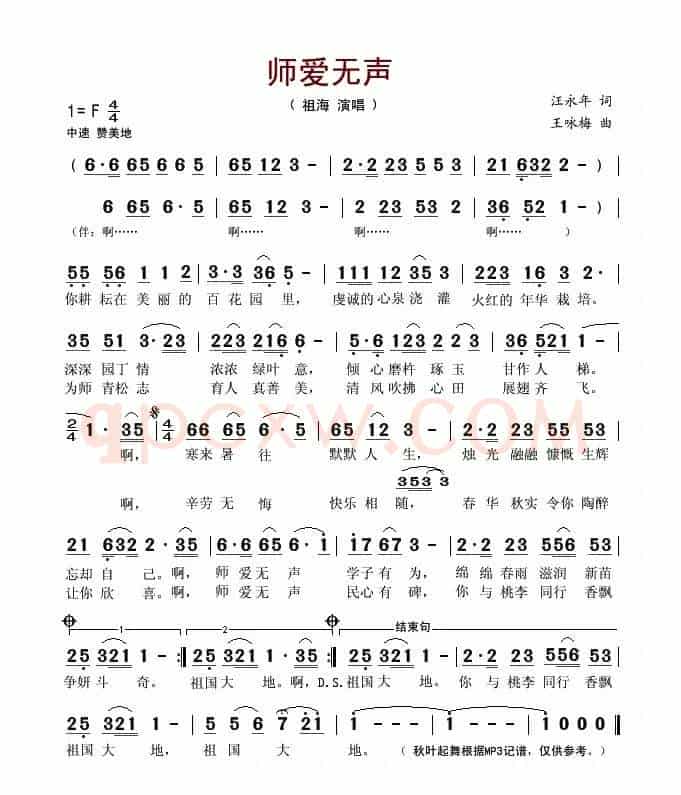 师爱无声
（ 祖海 演唱 ）
1= F 4/4
中速 赞美地
汪永年 词
王咏梅 曲
( 6·6 65 6 65 | 65 12 3 - | 2·2 23 55 3 | 21 632 2 -
6 65 6·5 | 65 12 3 - | 2 23 53 2 | 36 52 1 - )
（伴：啊…… 啊…… 啊…… 啊…… ）
55 56 1 1 2 | 3·3 36 5 - | 111 12 35 3 | 223 16 2 -
你耕 耘在 美 丽 的 百 花 园 里， 虔诚的 心泉 浇 灌 火红的 年华 栽 培。
35 51 3·23 | 223 216 6 - | 5·6 123 2·2 | 36 521 1 -
深深 园丁 情 浓浓 绿叶 意， 倾 心 磨杵 琢 玉 甘作 人 梯。
为师 青松 志 育人 真善 美， 清 风 吹拂 心 田 展翅 齐 飞。
2/4 1· 35 | 4/4 66 65 6·5 | 65 12 3 - | 2·2 23 555 53
qpcxw.com
啊， 寒来 暑 往 默默 人 生， 烛 光 融融 慷慨 生辉
353 3
啊， 辛劳 无 悔 快乐 相 随， 春 华 秋实 令你 陶醉
21 632 2·35 | 65 65 6·1 | 17 67 3 - | 2·2 23 556 53
忘却 自 己。啊， 师 爱 无 声 学子 有 为， 绵 绵 春雨 滋润 新苗
让你 欣 喜。啊， 师 爱 无 声 民心 有 碑， 你 与 桃李 同行 香飘
1 2 结束句
25 321 1 - :| 25 321 1·35 | 25 321 1 - | 2·2 23 556 53
争妍 斗 奇。 祖国 大 地。啊，D.S.祖国 大 地。 你 与 桃李 同行 香飘
25 321 1 - | 25 6 7 21 | 1 - - - | 1 - 1 - | 1 0 0 0 ‖
祖国 大 地， 祖 国 大 地。 （ 秋叶起舞根据MP3记谱，仅供参考。）